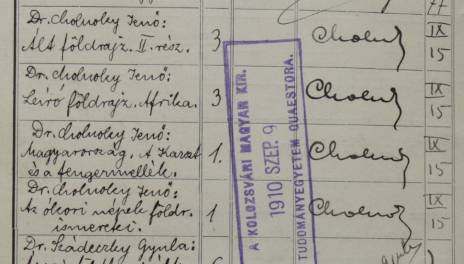 77
Dr. Cholnoky Jenő:
Ált földrajz. II. rész. 3 Choln IX 15
Dr. Cholnoky Jenő:
Leíró földrajz. Afrika. 3 Choln IX 15
Dr. Cholnoky Jenő:
Magyarország. A Karszt
és a tengermellék. 1. Choln IX 15
Dr. Cholnoky Jenő:
Az ókori népek földr.
ismeretei. 1 Choln IX 15
Dr. Szádeczky Gyula:
A KOLOZSVÁRI MAGYAR KIR.
1910 SZEP. 9
TUDOMÁNYEGYETEM QUAESTORA.